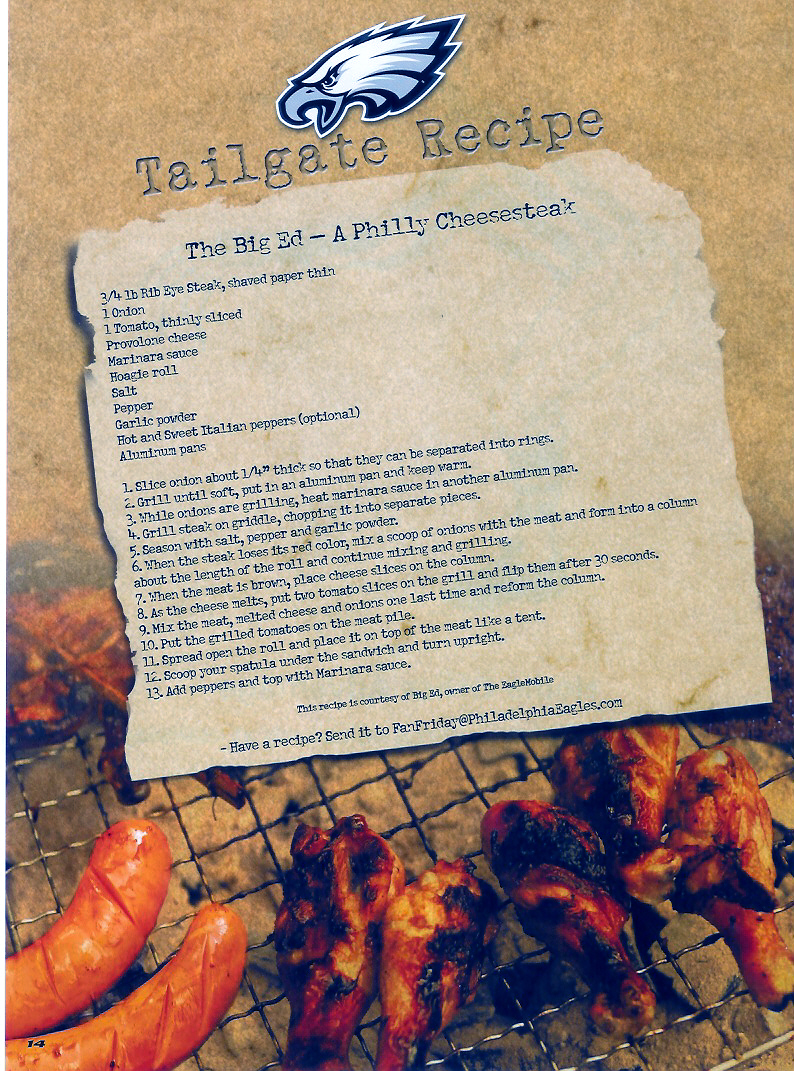 Tailgate Recipe
The Big Ed – A Philly Cheesesteak
3/4 lb Rib Eye Steak, shaved paper thin
1 Onion
1 Tomato, thinly sliced
Provolone cheese
Marinara sauce
Hoagie roll
Salt
Pepper
Garlic powder
Hot and Sweet Italian peppers (optional)
Aluminum pans
1. Slice onion about 1/4" thick so that they can be separated into rings.
2. Grill until soft, put in an aluminum pan and keep warm.
3. While onions are grilling, heat marinara sauce in another aluminum pan.
4. Grill steak on griddle, chopping it into separate pieces.
5. Season with salt, pepper and garlic powder.
6. When the steak loses its red color, mix a scoop of onions with the meat and form into a column
about the length of the roll and continue mixing and grilling.
7. When the meat is brown, place cheese slices on the column.
8. As the cheese melts, put two tomato slices on the grill and flip them after 30 seconds.
9. Mix the meat, melted cheese and onions one last time and reform the column.
10. Put the grilled tomatoes on the meat pile.
11. Spread open the roll and place it on top of the meat like a tent.
12. Scoop your spatula under the sandwich and turn upright.
13. Add peppers and top with Marinara sauce.
This recipe is courtesy of Big Ed, owner of The EagleMobile
- Have a recipe? Send it to FanFriday@PhiladelphiaEagles.com
14